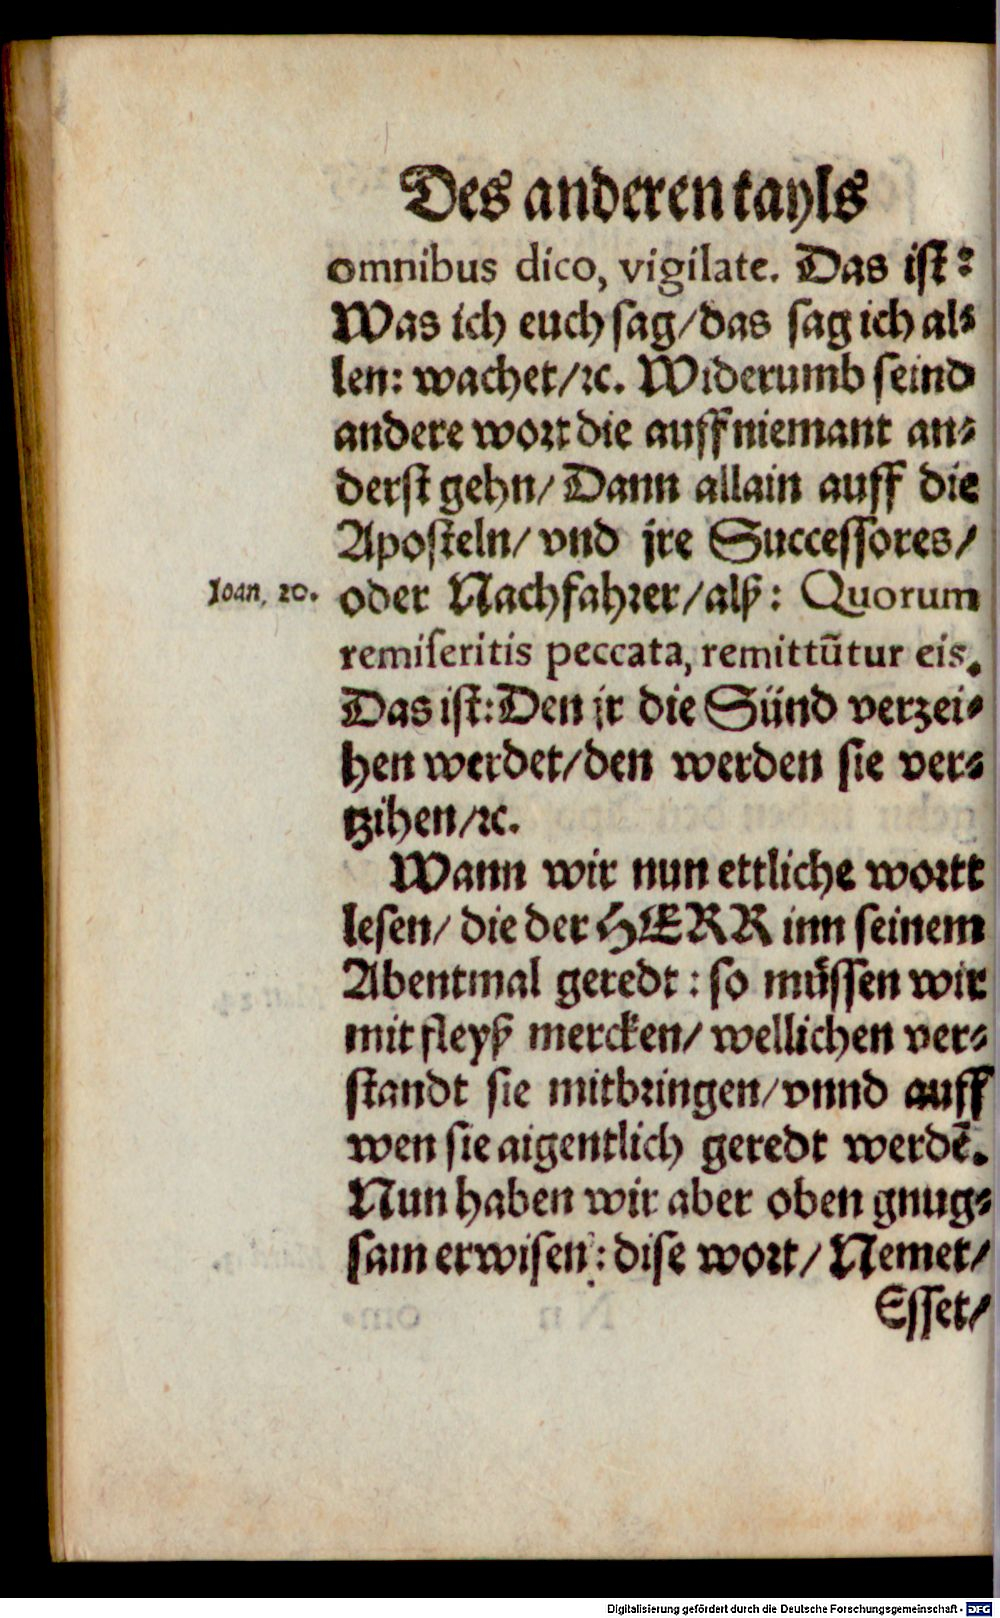 Des anderen tayls
omnibus dico, vigilate. Das ist:
Was ich euch sag/das sag ich al⸗
len: wachet/ꝛc. Widerumb seind
andere wort die auff niemant an⸗
derst gehn/ Dann allain auff die
Aposteln/ vnd jre Successores/
Ioan. 20.
oder Nachfahrer/alß: Quorum
remiseritis peccata, remittũtur eis.
Das ist: Den jr die Sünd verzei⸗
hen werdet/den werden sie ver⸗
tzihen/ꝛc.
Wann wir nun ettliche wortt
lesen/ die der HERR inn seinem
Abentmal geredt: so müssen wir
mit fleyß mercken/ wellichen ver⸗
standt sie mitbringen/vnnd auff
wen sie aigentlich geredt werdẽ.
Nun haben wir aber oben gnug⸗
sam erwisen: dise wort/ Nemet/
Esset/
Digitalisierung gefördert durch die Deutsche Forschungsgemeinschaft - DFG